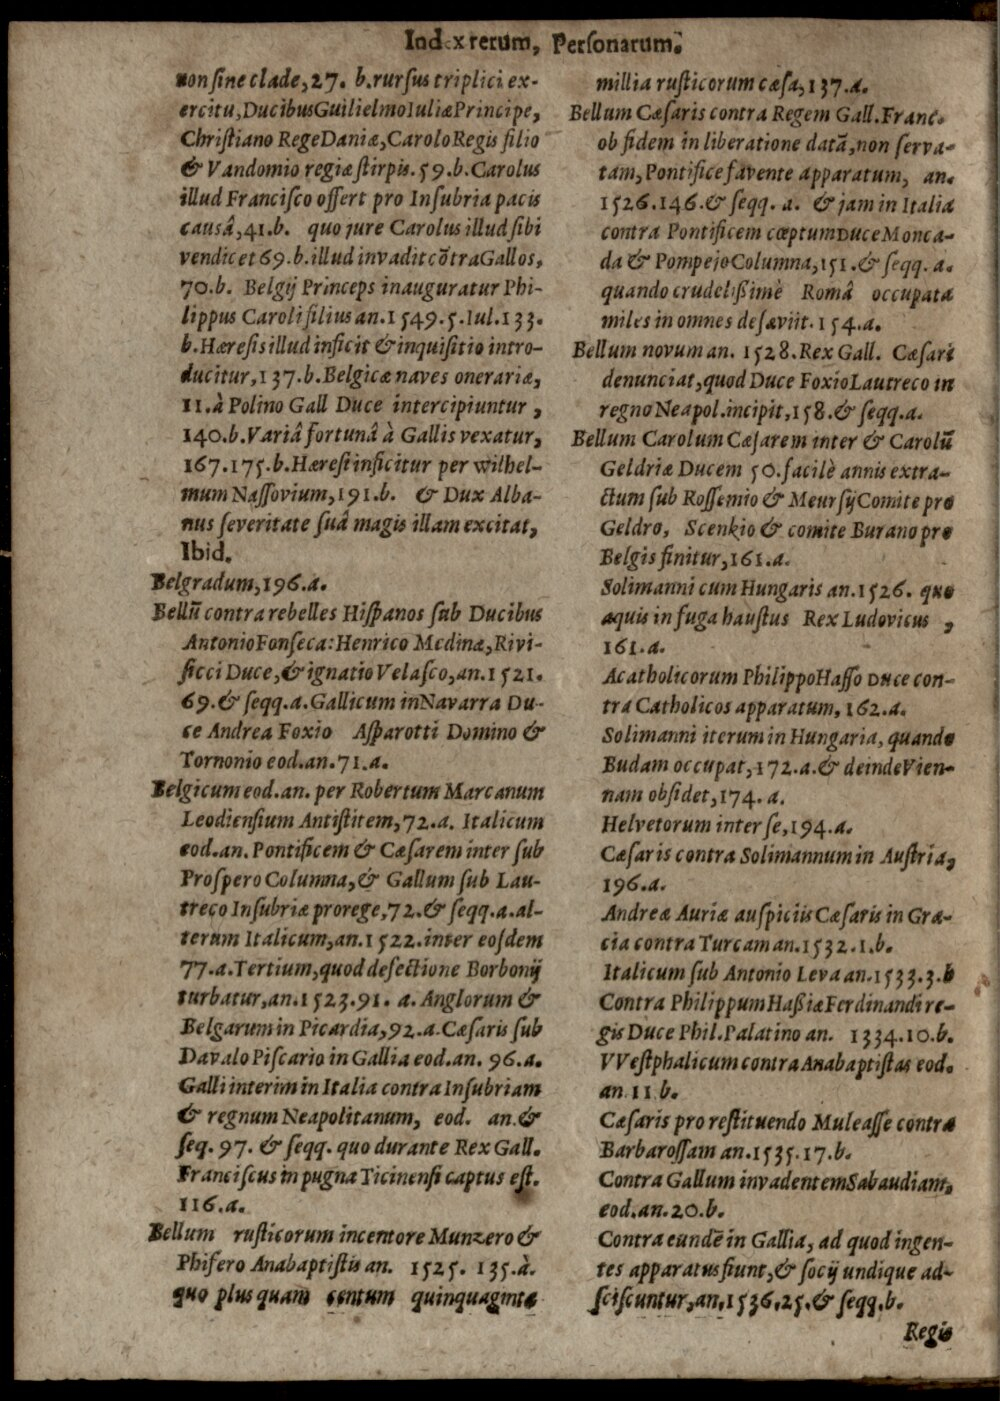 Index rerum, Personarum.
non sine clade, 27. b. rursus triplici ex-
ercitu, Ducibus Guilielmo Iuliæ Principe,
Christiano Rege Daniæ, Carolo Regis filio
& Vandomio regiæ stirpis. 59. b. Carolus
illud Francisco offert pro Insubria pacis
causâ, 41. b. quo jure Carolus illud sibi
vendicet 69. b. illud invadit cõtra Gallos,
70. b. Belgij Princeps inauguratur Phi-
lippus Caroli filius an. 1549. 5. Iul. 133.
b. Hæresis illud inficit & inquisitio intro-
ducitur, 137. b. Belgicæ naves onerariæ,
11. à Polino Gall Duce intercipiuntur,
140. b. Variâ fortunâ à Gallis vexatur,
167. 175. b. Hæresi inficitur per Wilhel-
mum Nassovium, 191. b. & Dux Alba-
nus severitate suâ magis illam excitat,
Ibid.
Belgradum, 196. a.
Bellũ contra rebelles Hispanos sub Ducibus
Antonio Fonseca: Henrico Medinæ, Rivi-
sicci Duce, & ignatio Velasco, an. 1521.
69. & seqq. a. Gallicum in Navarra Du-
ce Andrea Foxio Asparotti Domino &
Tornonio eod. an. 71. a.
Belgicum eod. an. per Robertum Marcanum
Leodiensium Antistitem, 72. a. Italicum
eod. an. Pontificem & Cæsarem inter sub
Prospero Columna, & Gallum sub Lau-
treco Insubriæ prorege, 72. & seqq. a. al-
terum Italicum, an. 1522. inter eosdem
77. a. Tertium, quod defectione Borbonij
turbatur, an. 1523. 91. a. Anglorum &
Belgarum in Picardia, 92. a. Cæsaris sub
Davalo Piscario in Gallia eod. an. 96. a.
Galli interim in Italia contra Insubriam
& regnum Neapolitanum, eod. an. &
seq. 97. & seqq. quo durante Rex Gall.
Franciscus in pugna Ticinensi captus est.
116. a.
Bellum rusticorum incentore Munzero &
Phifero Anabaptistis an. 1525. 135. à.
quo plus quam centum quinquaginta
millia rusticorum cæsa, 137. a.
Bellum Cæsaris contra Regem Gall. Franc.
ob fidem in liberatione datã, non serva-
tam, Pontifice favente apparatum, an.
1526. 146. & seqq. a. & jam in Italia
contra Pontificem cœptum Duce Monca-
da & Pompejo Columna, 151. & seqq. a.
quando crudelißimè Româ occupatæ
miles in omnes desæviit. 154. a.
Bellum novum an. 1528. Rex Gall. Cæsari
denunciat, quod Duce Foxio Lautreco in
regno Neapol. incipit, 158. & seqq. a.
Bellum Carolum Cæsarem inter & Carolũ
Geldriæ Ducem 50. facilè annis extra-
ctum sub Rossemio & Meursij Comite pro
Geldro, Scenkio & comite Burano pro
Belgis finitur, 161. a.
Solimanni cum Hungaris an. 1526. quo
aquis in fuga haustus Rex Ludovicus,
161. a.
Acatholicorum Philippo Hasso Duce con-
tra Catholicos apparatum, 162. a.
Solimanni iterum in Hungaria, quando
Budam occupat, 172. a. & deinde Vien-
nam obsidet, 174. a.
Helvetorum inter se, 194. a.
Cæsaris contra Solimannum in Austria,
196. a.
Andreæ Auriæ auspiciis Cæsaris in Græ-
cia contra Turcam an. 1532. 1. b.
Italicum sub Antonio Leva an. 1533. 3. b
Contra Philippum Haßiæ Ferdinandi re-
gis Duce Phil. Palatino an. 1334. 10. b.
VVestphalicum contra Anabaptistas eod.
an. 11 b.
Cæsaris pro restituendo Muleasse contra
Barbarossam an. 1535. 17. b.
Contra Gallum invadentem Sabaudiam,
eod. an. 20. b.
Contra eundẽ in Gallia, ad quod ingen-
tes apparatus fiunt, & socij undique ad-
sciscuntur, an. 1536. 25. & seqq. b.
Regis